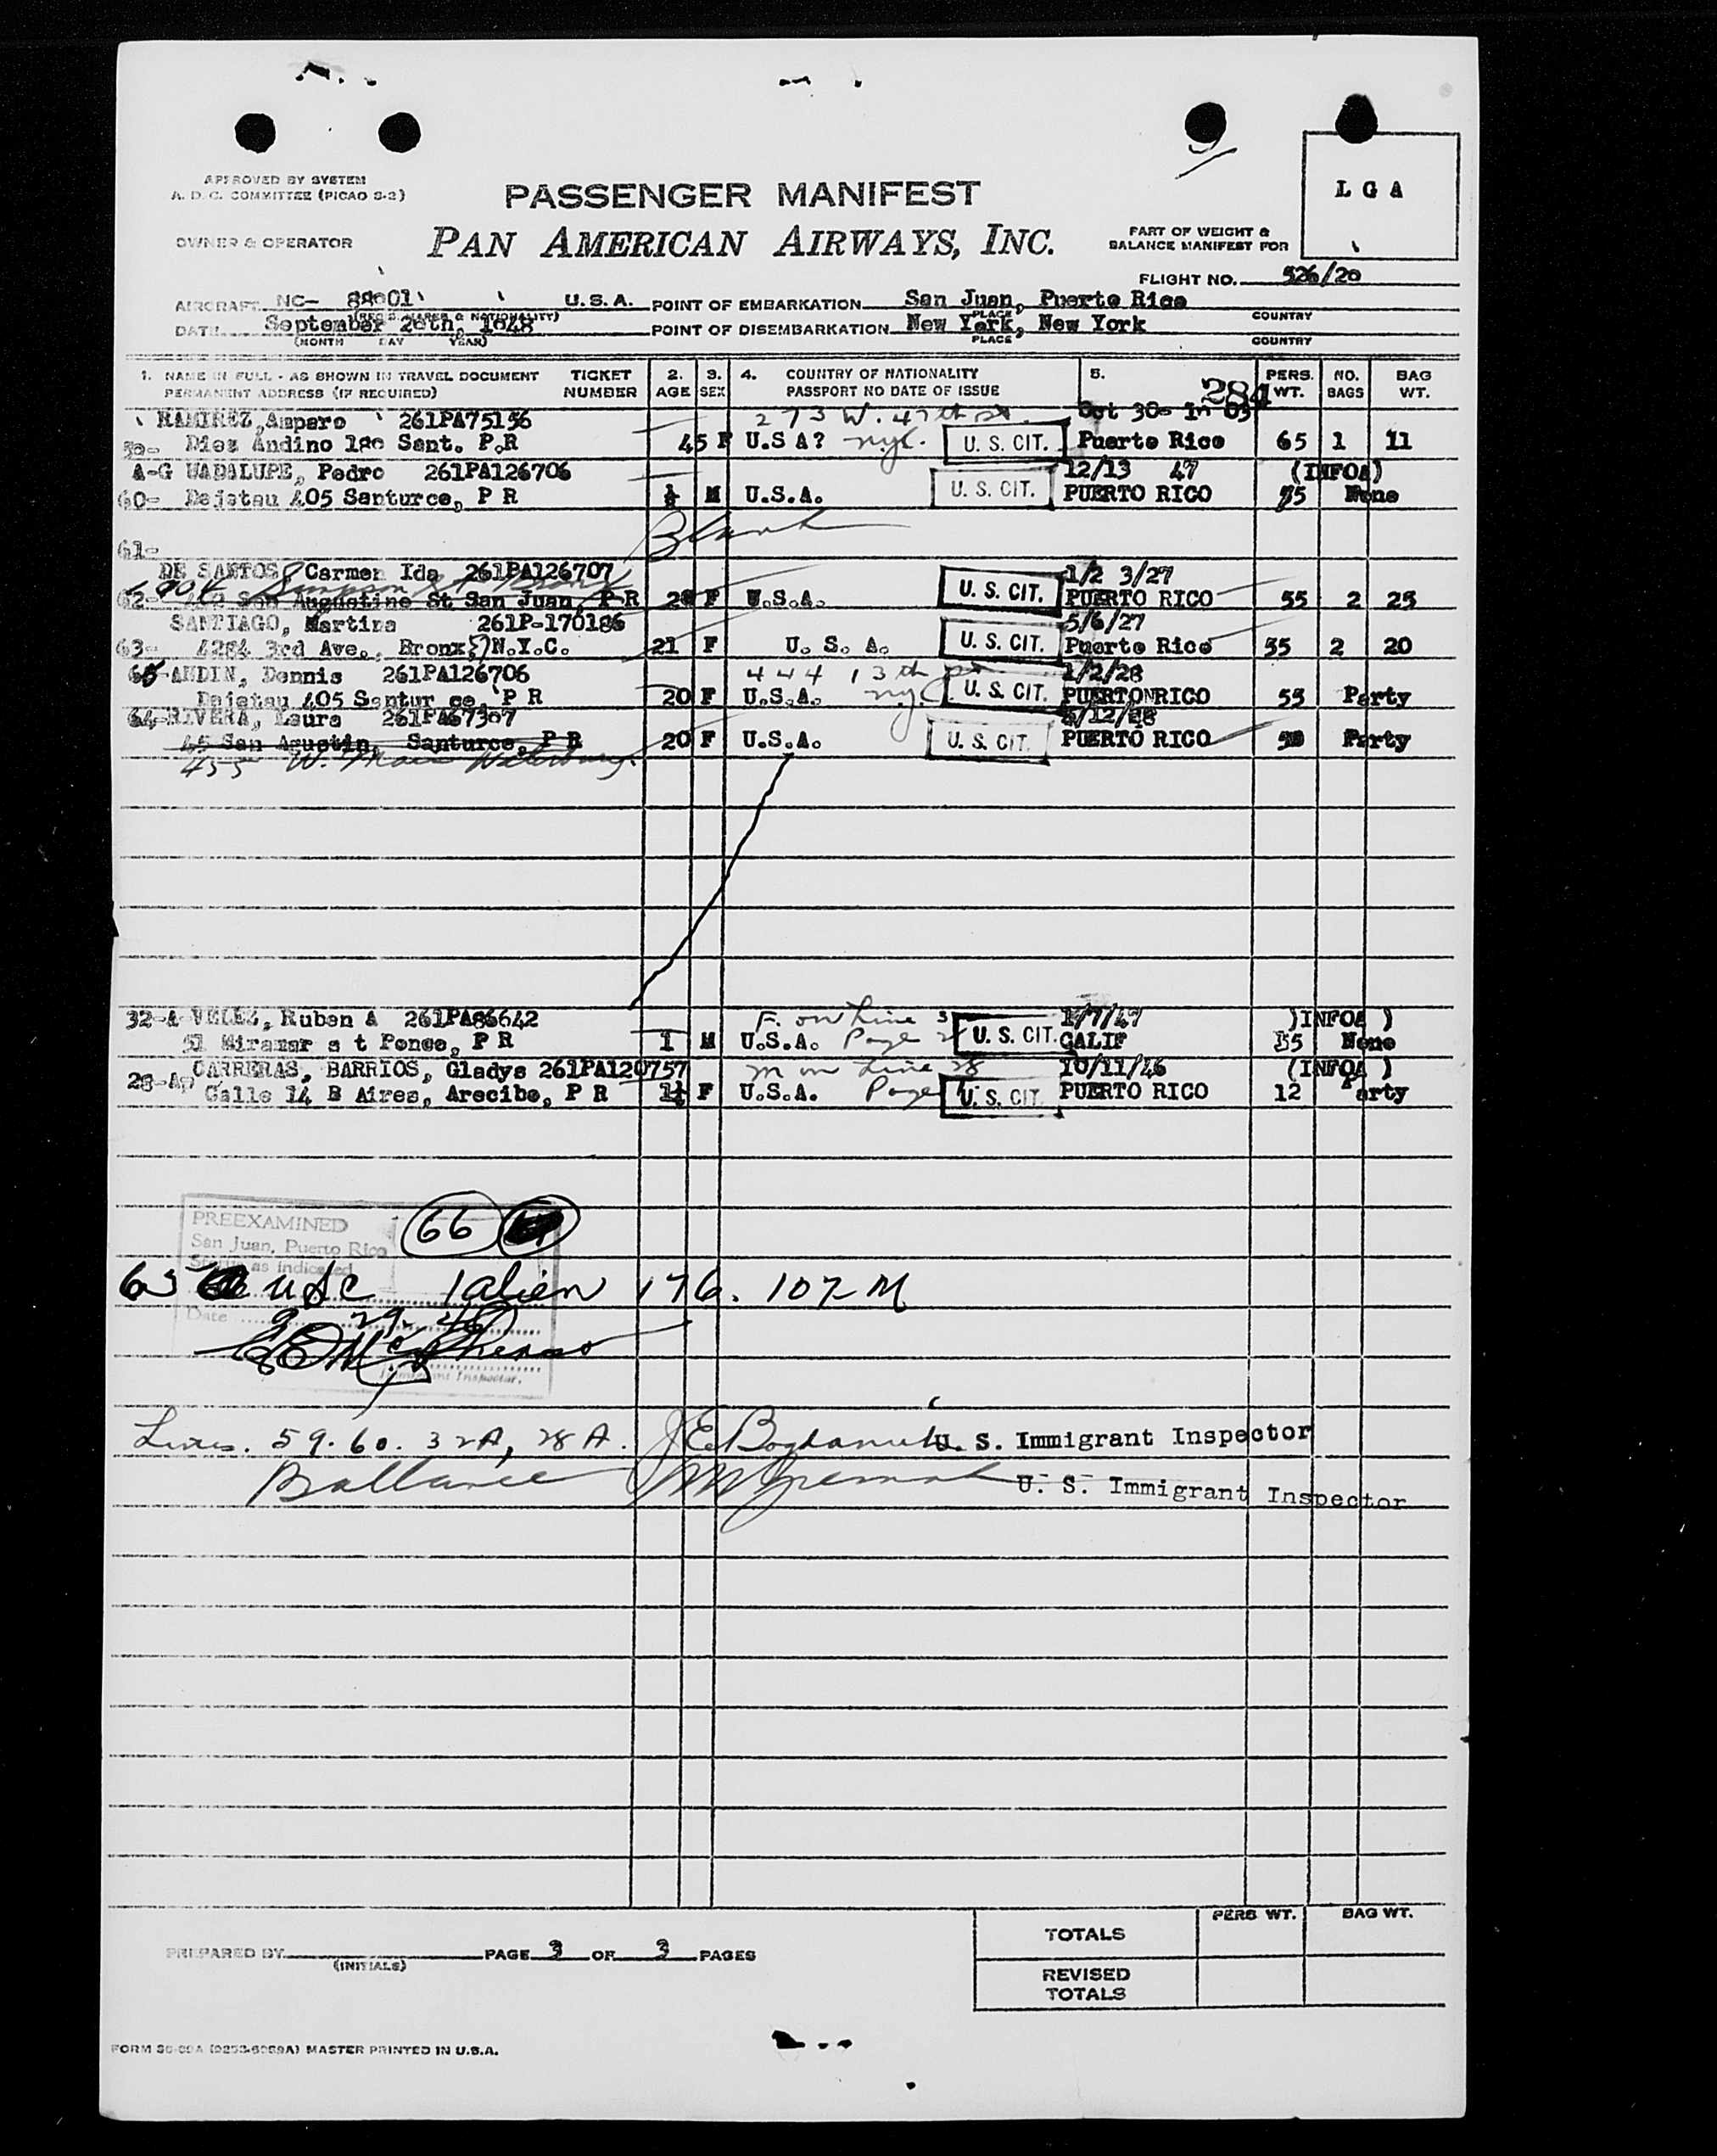 APPROVED BY SYSTEM
A. D. C. COMMITTEE (PICAO S-2)
PASSENGER MANIFEST
L G A
OWNER & OPERATOR
PAN AMERICAN AIRWAYS, INC.
PART OF WEIGHT &
BALANCE MANIFEST FOR
FLIGHT NO. 526/20
AIRCRAFT NC- 88001 U.S.A. POINT OF EMBARKATION San Juan, Puerto Rico
PLACE COUNTRY
DATE September 20th, 1948 POINT OF DISEMBARKATION New York, New York
(MONTH DAY YEAR) PLACE COUNTRY
1. NAME IN FULL - AS SHOWN IN TRAVEL DOCUMENT TICKET 2. 3. 4. COUNTRY OF NATIONALITY 5. PERS. NO. BAG
PERMANENT ADDRESS (IF REQUIRED) NUMBER AGE SEX PASSPORT NO DATE OF ISSUE 284 WT. BAGS WT.
RAMIREZ, Amparo 261PA75156 273 W. 47th St. Oct 30-
Diez Andino 180 Sant. P.R 45 F U.S A? NYC. U. S. CIT. Puerto Rico 65 1 11
A-G UADALUPE, Pedro 261PA126706 12/13 47 (INFOA)
60- Dajatau 405 Santurce, P R M U.S.A. U. S. CIT. PUERTO RICO None
61- Blank
DE SANTOS, Carmen Ida 261PA126707 1/2 3/27
62- San Augustine St San Juan, P R F U.S.A. U. S. CIT. PUERTO RICO 55 2 25
SANTIAGO, Martina 261P-170186 5/6/27
63- 4284 3rd Ave., Bronx, N.Y.C. 21 F U. S. A. U. S. CIT. Puerto Rico 55 2 20
ANDIN, Dennis 261PA126706 444 13th St. 1/2/28
Dajatau 405 Santur ce, P R 20 F U.S.A. NYC U. S. CIT. PUERTONRICO 55 Party
64- RIVERA, Laura 261PA67307
45 San Agustin, Santurce, P R 20 F U.S.A. U. S. CIT. PUERTO RICO Party
455 W. Main
32-A VELEZ, Ruben A 261PA86642 F. on Line 1/7/47 )INFOA )
Miramar s t Ponce, P R 1 M U.S.A. Page U. S. CIT. CALIF None
CARRERAS, BARRIOS, Gladys 261PA120757 M on Line 28 10/11/46 (INFOA )
28-A Calle 14 B Aires, Arecibo, P R F U.S.A. Page U. S. CIT. PUERTO RICO 12 Party
66
PREEXAMINED
San Juan, Puerto Rico
Status as indicated
65 USC 1 alien 176. 107-M
Date
Immigrant Inspector.
Lines. 59. 60. 32A, 28A. U. S. Immigrant Inspector
Ballance U. S. Immigrant Inspector
PERS WT. BAG WT.
TOTALS
PREPARED BY PAGE 3 OF 3 PAGES
(INITIALS)
REVISED
TOTALS
MASTER PRINTED IN U.S.A.